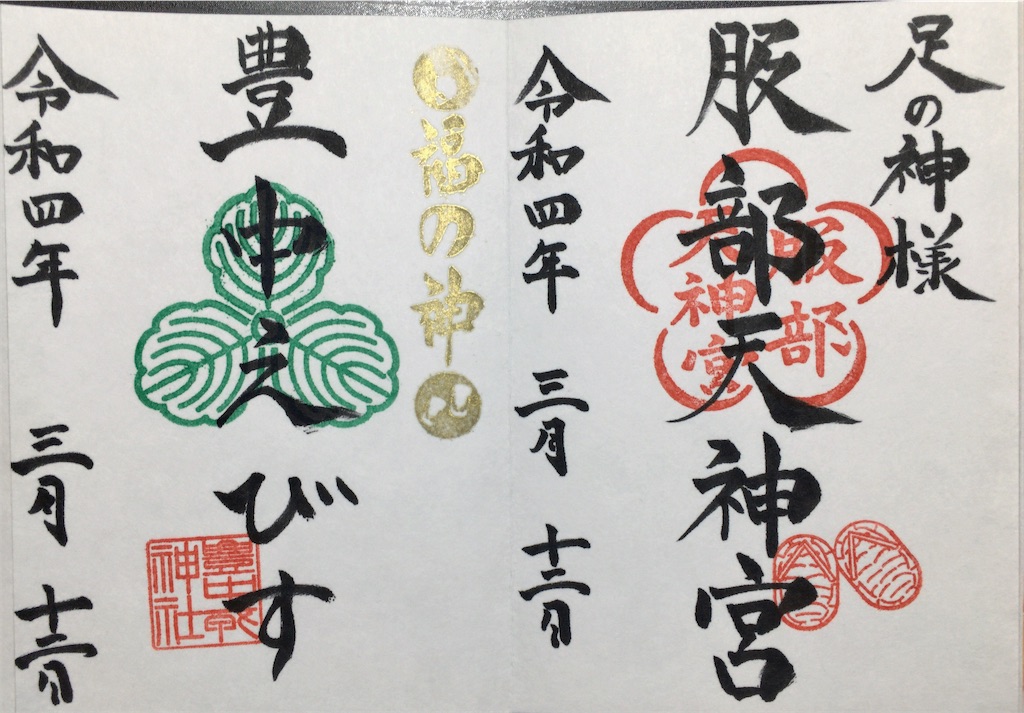 足の神様
服部天神宮
服部
天神宮
令和四年 三月 十二日
福の神
豊中えびす
豊中戎
神社
令和四年 三月 十二日